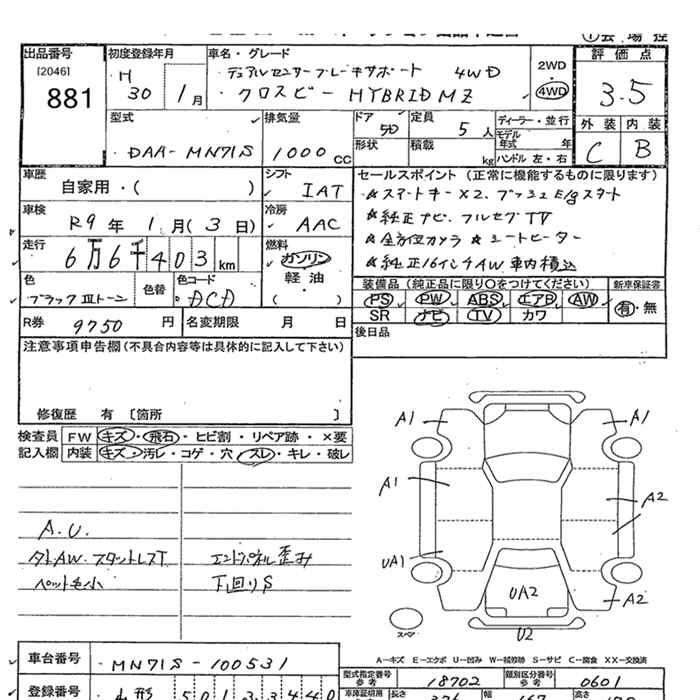 出品番号 初度登録年月 車名・グレード 評価点
[2046] H デュアルセンサーブレーキサポート 4WD 2WD
881 30 1月 クロスビー HYBRID MZ 4WD 3.5
型式 排気量 ドア 定員 ディーラー・並行 外装 内装
DAA-MN71S 1000cc 5D 5人 モデル年式 年 C B
形状 積載 kg ハンドル 左・右
車歴 シフト セールスポイント(正常に機能するものに限ります)
自家用・( ) IAT ☆スマートキー×2、プッシュE/gスタート
車検 冷房 ☆純正ナビ、フルセグTV
R9年 1月(3日) AAC ☆全方位カメラ ☆シートヒーター
走行 燃料 ☆純正16インチAW車内積込
6万6千403km ガソリン
色 色替 色コード 軽油 装備品(純正品に限り○をつけてください) 新車保証書
ブラックⅢトーン DCD ( ) PS PW ABS エアB AW 有・無
R券 9750円 名変期限 月 日 SR ナビ TV カワ
注意事項申告欄(不具合内容等は具体的に記入して下さい) 後日品
修復歴 有〔箇所 〕
検査員 FW キズ・飛石・ヒビ割・リペア跡・×要
記入欄 内装 キズ・汚レ・コゲ・穴・スレ・キレ・破レ
A1 A1
A1 A2
A.U.
タイAW.スタットレスT エントパネル歪み UA1
ペット毛小 下回りS UA2 A2
スペア U2
A-キズ E-エクボ U-凹み W-補修跡 S-サビ C-腐食 XX-交換済
車台番号 MN71S-100531 型式指定番号 参考 18702 類別区分番号 参考 0601
登録番号 長さ 幅 高さ